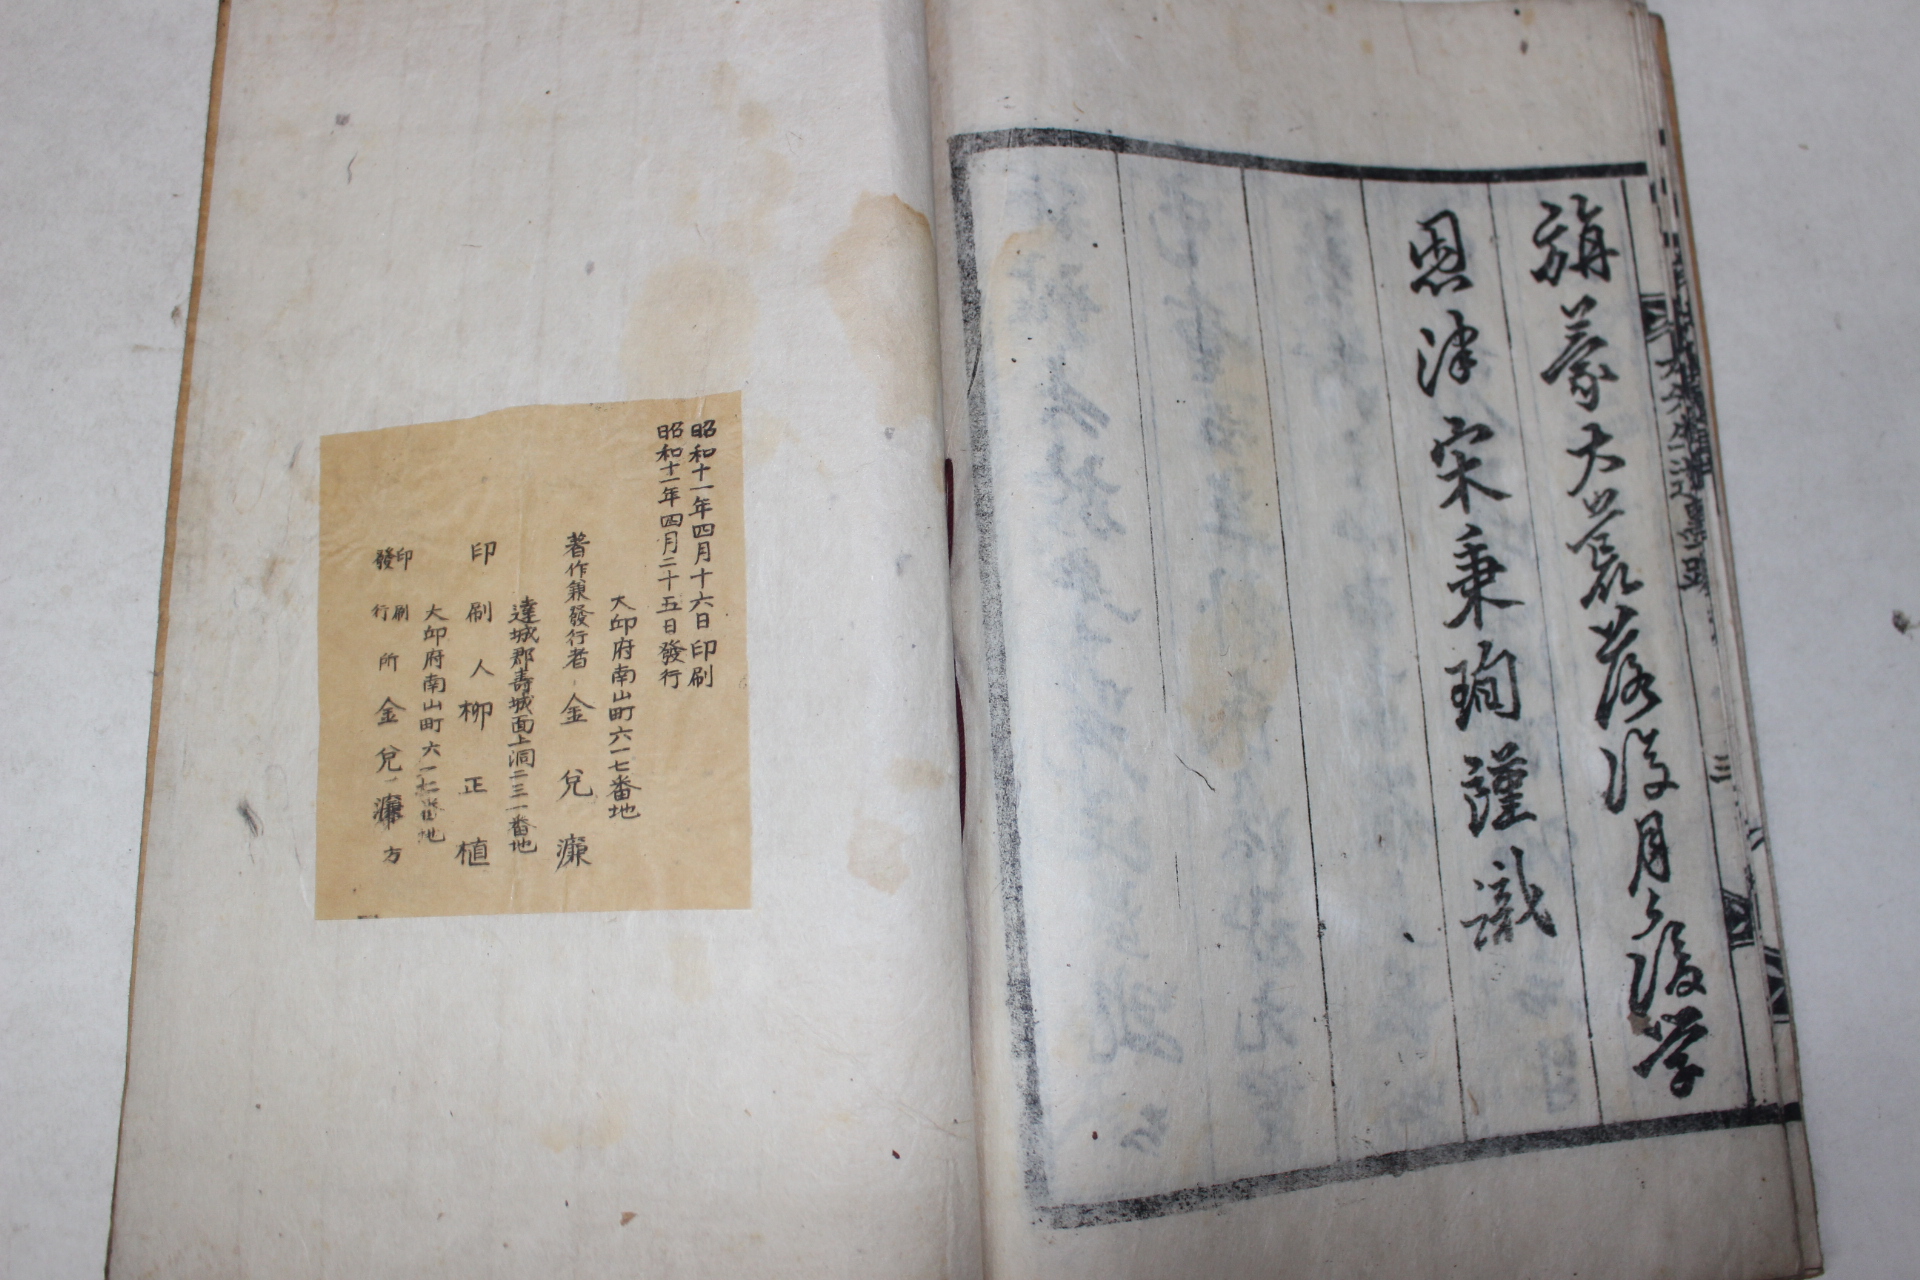 旃蒙大荒落沒月之後学
恩津宋秉珣謹識
三
昭和十一年四月十六日印刷
昭和十一年四月二十五日發行
大邱府南山町六一七番地
著作兼發行者 金兌濂
達城郡壽城面上洞二三一番地
印刷人 柳正植
大邱府南山町六一七番地
印刷
發行所 金兌濂方